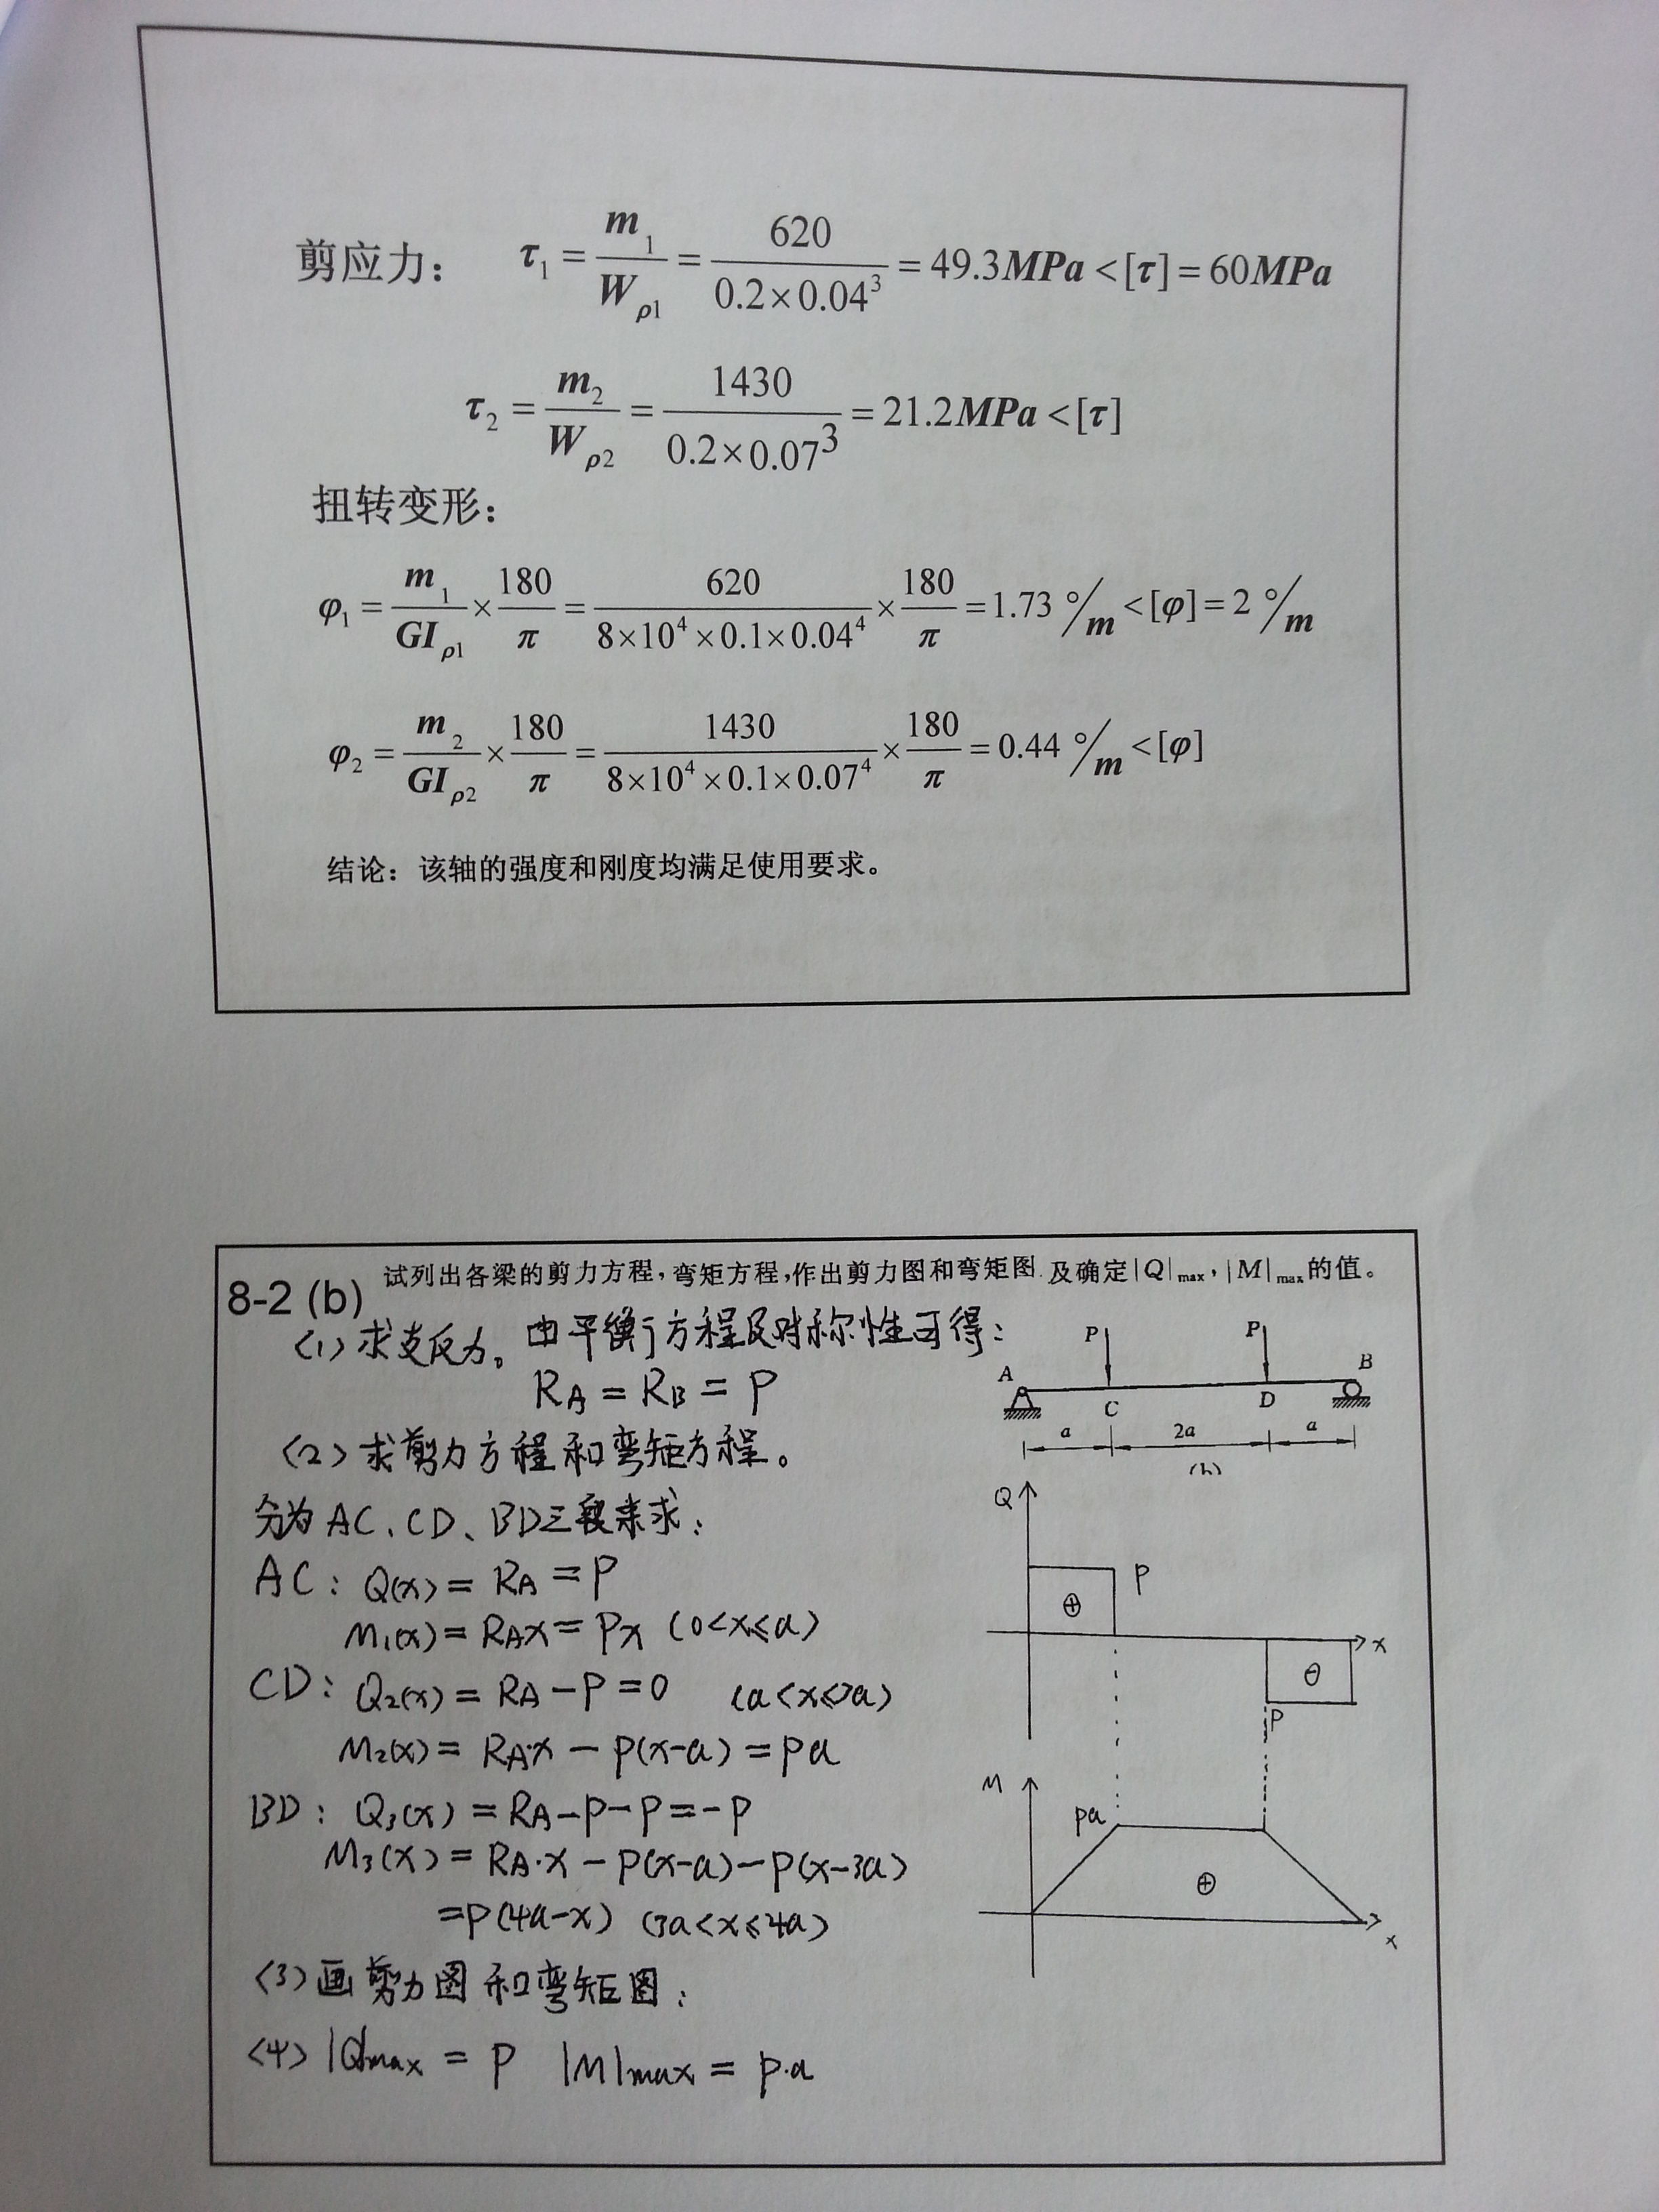 剪应力： τ₁ = m₁/Wρ₁ = 620/(0.2×0.04³) = 49.3MPa < [τ] = 60MPa
τ₂ = m₂/Wρ₂ = 1430/(0.2×0.07³) = 21.2MPa < [τ]
扭转变形：
φ₁ = m₁/GIρ₁ × 180/π = 620/(8×10⁴×0.1×0.04⁴) × 180/π = 1.73 °/m < [φ] = 2 °/m
φ₂ = m₂/GIρ₂ × 180/π = 1430/(8×10⁴×0.1×0.07⁴) × 180/π = 0.44 °/m < [φ]
结论：该轴的强度和刚度均满足使用要求。
8-2 (b) 试列出各梁的剪力方程，弯矩方程，作出剪力图和弯矩图.及确定|Q|max，|M|max的值。
(1) 求支反力。由平衡方程及对称性可得：
RA = RB = P
(2) 求剪力方程和弯矩方程。
分为AC、CD、BD三段来求：
AC： Q(x) = RA = P
M₁(x) = RAx = Px (0<x≤a)
CD： Q₂(x) = RA − P = 0 (a<x≤3a)
M₂(x) = RA·x − P(x−a) = Pa
BD： Q₃(x) = RA−P−P = −P
M₃(x) = RA·x − P(x−a) − P(x−3a)
=P(4a−x) (3a<x≤4a)
(3) 画剪力图和弯矩图：
(4) |Q|max = P |M|max = P·a
P P
A B
C D
a 2a a
(b)
Q
P
⊕
x
⊖
P
M
Pa
⊕
x